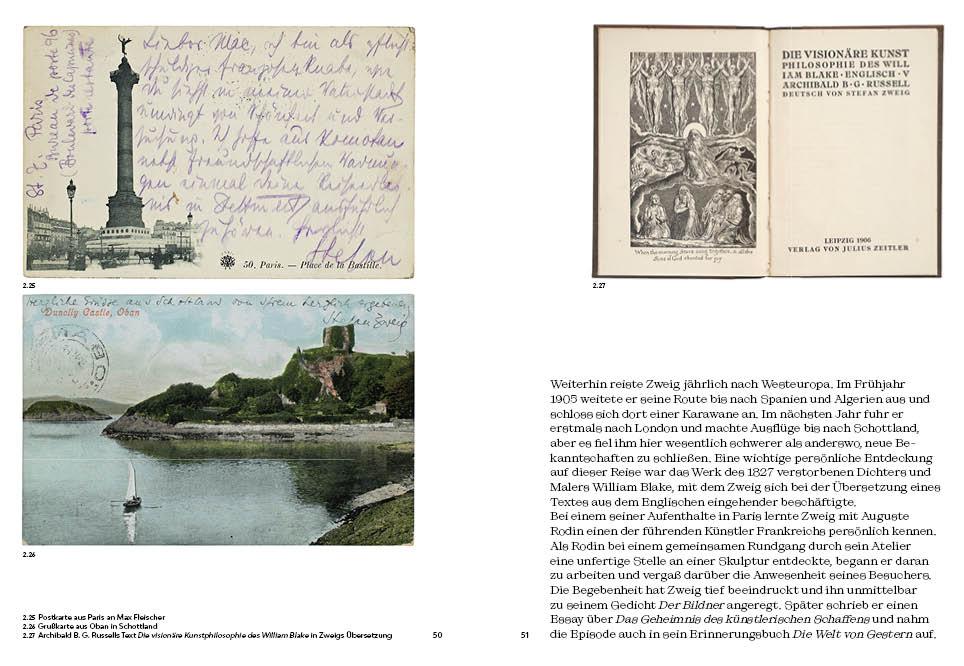 St. Z. Paris
Bureau de poste 96
(Boulevard des Capucines)
poste restante
Lieber Mac, ich bin als
in meiner Vaterstadt
von Schönheit und Ver-
suchung. Ich hoffe aus Komotau
nebst freundschaftlichen
gen einmal Deine
nis in ausführlich
zu hören. Herzlichst
Stefan
50. Paris. — Place de la Bastille.
2.25
Herzliche Grüsse aus Schottland von Ihrem herzlich ergebenen
Stefan Zweig
Dunolly Castle, Oban
OBAN
2.26
2.25 Postkarte aus Paris an Max Fleischer
2.26 Grußkarte aus Oban in Schottland
2.27 Archibald B. G. Russells Text Die visionäre Kunstphilosophie des William Blake in Zweigs Übersetzung
50
When the morning Stars sang together, & all the
Sons of God shouted for joy
DIE VISIONÄRE KUNST
PHILOSOPHIE DES WILL
IAM BLAKE · ENGLISCH · V
ARCHIBALD B · G · RUSSELL
DEUTSCH VON STEFAN ZWEIG
LEIPZIG 1906
VERLAG VON JULIUS ZEITLER
2.27
Weiterhin reiste Zweig jährlich nach Westeuropa. Im Frühjahr
1905 weitete er seine Route bis nach Spanien und Algerien aus und
schloss sich dort einer Karawane an. Im nächsten Jahr fuhr er
erstmals nach London und machte Ausflüge bis nach Schottland,
aber es fiel ihm hier wesentlich schwerer als anderswo, neue Be-
kanntschaften zu schließen. Eine wichtige persönliche Entdeckung
auf dieser Reise war das Werk des 1827 verstorbenen Dichters und
Malers William Blake, mit dem Zweig sich bei der Übersetzung eines
Textes aus dem Englischen eingehender beschäftigte.
Bei einem seiner Aufenthalte in Paris lernte Zweig mit Auguste
Rodin einen der führenden Künstler Frankreichs persönlich kennen.
Als Rodin bei einem gemeinsamen Rundgang durch sein Atelier
eine unfertige Stelle an einer Skulptur entdeckte, begann er daran
zu arbeiten und vergaß darüber die Anwesenheit seines Besuchers.
Die Begebenheit hat Zweig tief beeindruckt und ihn unmittelbar
zu seinem Gedicht Der Bildner angeregt. Später schrieb er einen
Essay über Das Geheimnis des künstlerischen Schaffens und nahm
die Episode auch in sein Erinnerungsbuch Die Welt von Gestern auf.
51